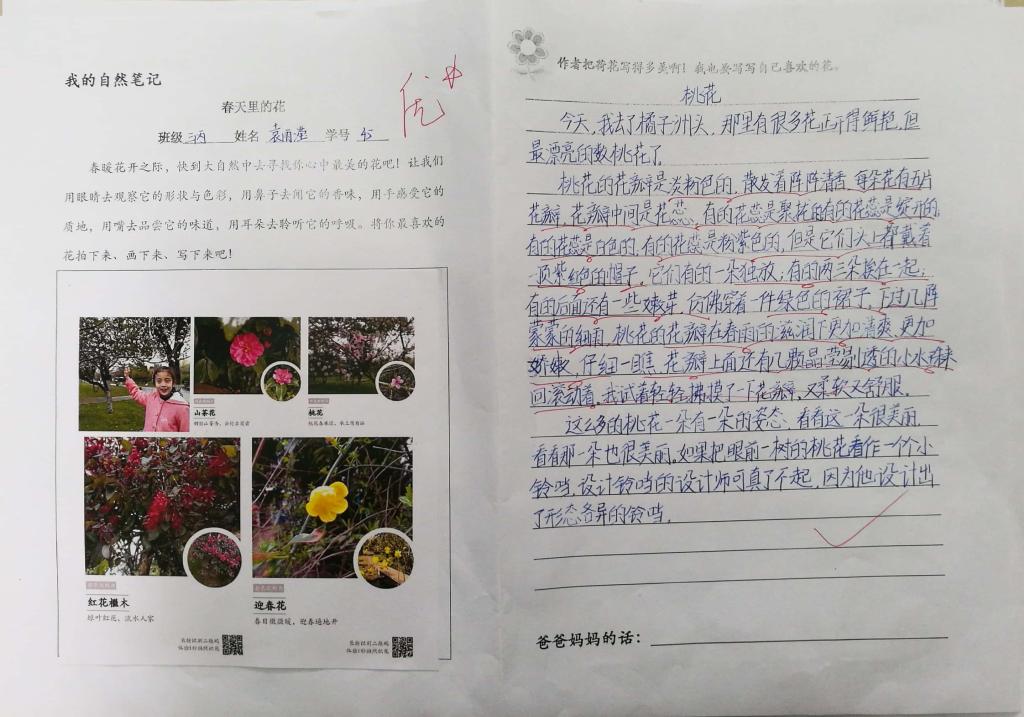 我的自然笔记
春天里的花
班级 三丙 姓名 学号 45
优
春暖花开之际，快到大自然中去寻找你心中最美的花吧！让我们
用眼睛去观察它的形状与色彩，用鼻子去闻它的香味，用手感受它的
质地，用嘴去品尝它的味道，用耳朵去聆听它的呼吸。将你最喜欢的
花拍下来、画下来、写下来吧！
山茶花
桃花
红花檵木
绿叶红花，流水人家
迎春花
春日微微暖，迎春遍地开
长按识别二维码
长按识别二维码
作者把荷花写得多美啊！我也要写写自己喜欢的花。
桃花
今天，我去了橘子洲头，那里有很多花正开得鲜艳，但
最漂亮的数桃花了。
桃花的花瓣是淡粉色的，散发着阵阵清香，每朵花有五片
花瓣，花瓣中间是花蕊，有的花蕊是聚花的有的花蕊是绽开的，
有的花蕊是白色的，有的花蕊是粉紫色的，但是它们头上都戴着
一顶紫红色的帽子，它们有的一朵独放；有的两三朵挨在一起，
有的后面还有一些嫩芽，仿佛穿着一件绿色的裙子，下过几阵
蒙蒙的细雨，桃花的花瓣在春雨的滋润下更加清爽，更加
娇嫩，仔细一瞧，花瓣上面还有几颗晶莹剔透的小水珠来
回滚动着，我试着轻轻抚摸了一下花瓣，又柔软又舒服。
这么多的桃花一朵有一朵的姿态，看看这一朵很美丽，
看看那一朵也很美丽。如果把眼前一树的桃花看作一个个小
铃铛，设计铃铛的设计师可真了不起，因为他设计出
了形态各异的铃铛。
爸爸妈妈的话：